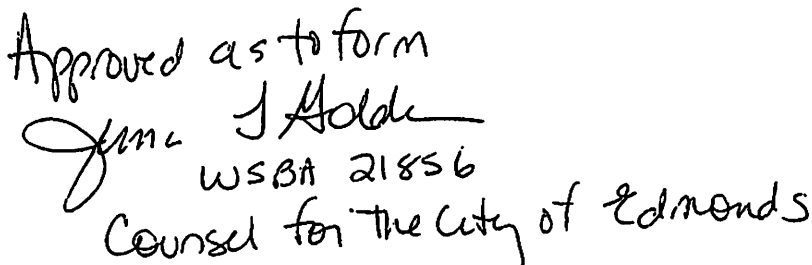 Approved as to form
J
WSBA 21856
Counsel for the City of Edmonds